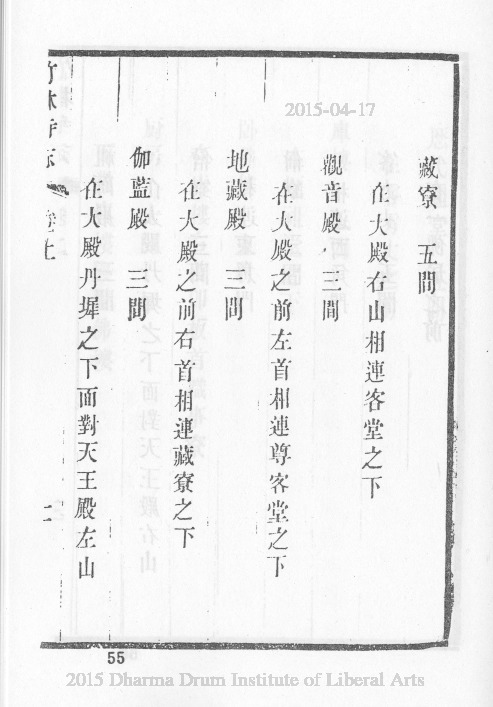 2015-04-17
藏寮 五間
在大殿右山相連客堂之下
觀音殿 三間
在大殿之前左首相連尊客堂之下
地藏殿 三間
在大殿之前右首相連藏寮之下
伽藍殿 三間
在大殿丹墀之下面對天王殿左山
竹林寺志
55
2015 Dharma Drum Institute of Liberal Arts